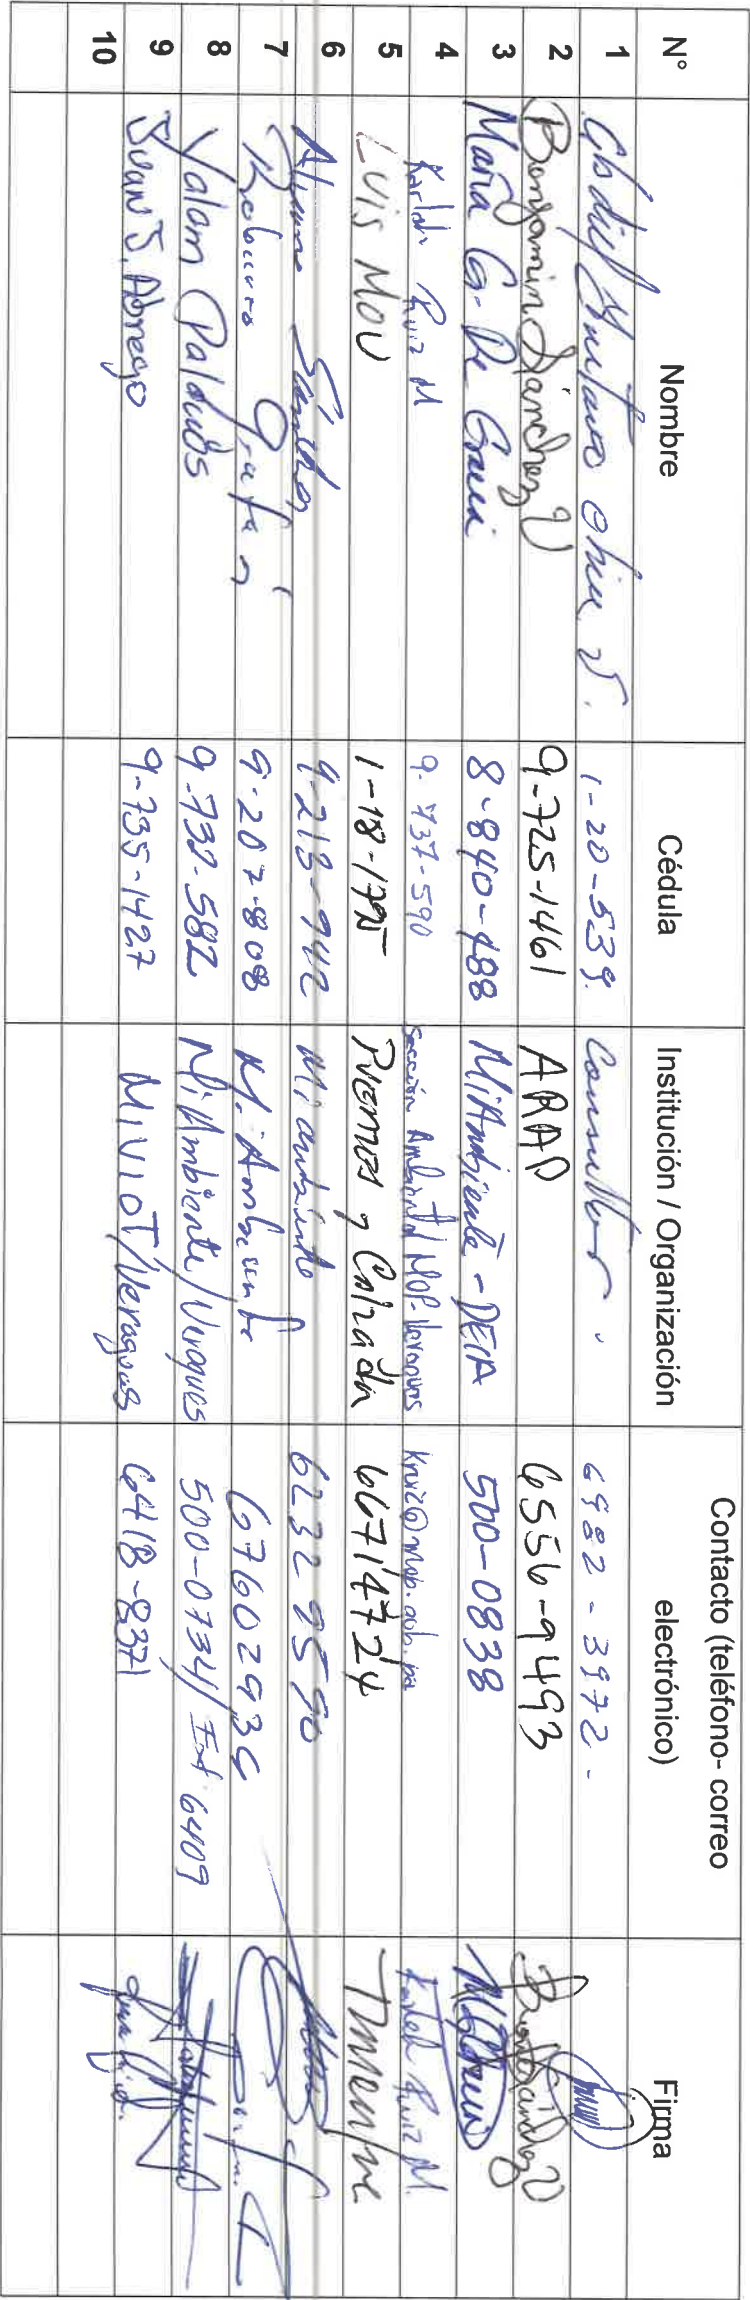 N° Nombre Cédula Institución / Organización Contacto (teléfono- correo electrónico) Firma
1 Chin 1-20-539 Consultor. 6982-3972-
2 Benjamin Sánchez V 9-725-1461 ARAP 6556-9493 Sánchez V
3 María G. De Gracia 8-840-488 MiAmbiente - DEIA 500-0838
4 Karleh Ruiz M 9-737-590 Sección Ambiental MOP-Veraguas kruiz@mop.gob.pa Karleh Ruiz M.
5 Luis Mou 1-18-1795 Puentes y Calzada 66714724
6 Mi ambiente
7 9-207-808 Mi Ambiente 67602936
8 Yalam Palacios 9-730-582 MiAmbiente/Veraguas 500-0734/ Ext 6409
9 Juan J. Abrego 9-735-1427 MIVIOT/Veraguas 6418-8371
10